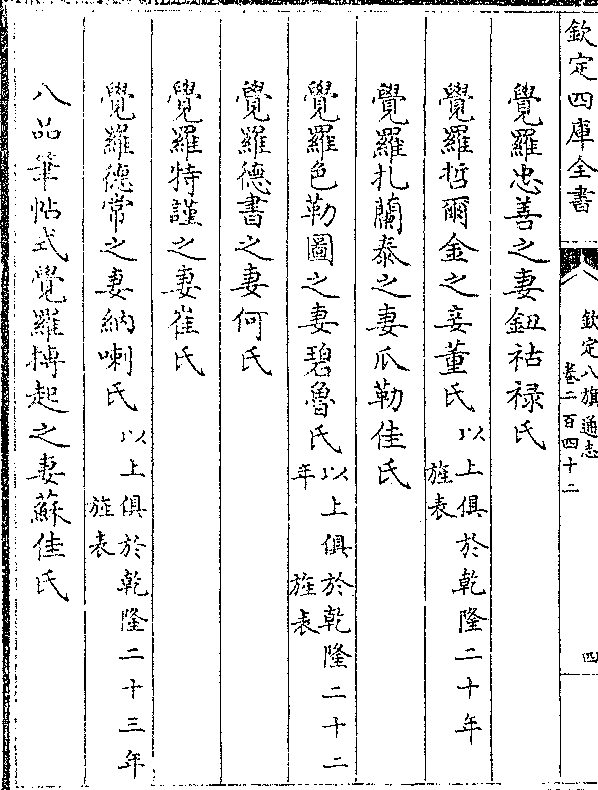 欽定四庫全書
欽定八旗通志
卷二百四十二
四
覺羅忠善之妻鈕祜禄氏
覺羅哲爾金之妾董氏以上俱於乾隆二十年
旌表
覺羅扎蘭泰之妻瓜勒佳氏
覺羅色勒圖之妻碧魯氏以上俱於乾隆二十二
年旌表
覺羅德書之妻何氏
覺羅特謹之妻崔氏
覺羅德常之妻納喇氏以上俱於乾隆二十三年
旌表
八品筆帖式覺羅搏起之妻蘇佳氏